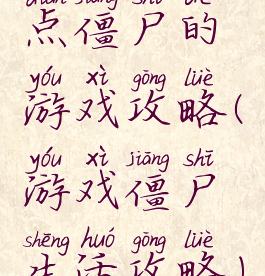 diǎn jiāng shī de
点僵尸的
yóu xì gōng lüè
游戏攻略(
yóu xì jiāng shī
游戏僵尸
shēng huó gōng lüè
生活攻略)